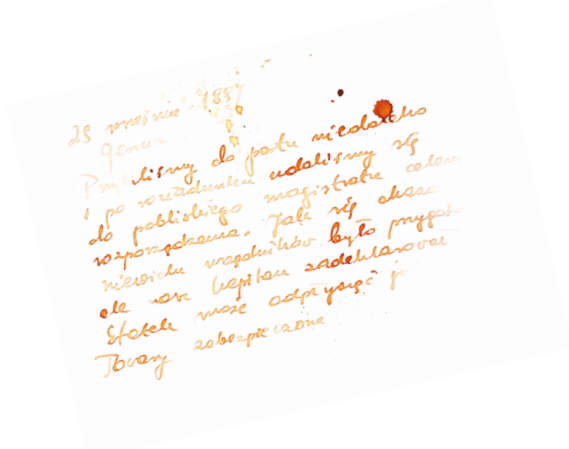 25 września 1889
Genua
Przybyliśmy do portu niedaleko
i po rozładunku udaliśmy się
do pobliskiego magistratu celem
rozporządzania. Jak się okaza
niewielu urzędników było przygoto
ale nasz kapitan zadeklarował
Statek może odpłynąć
Towary zabezpieczone